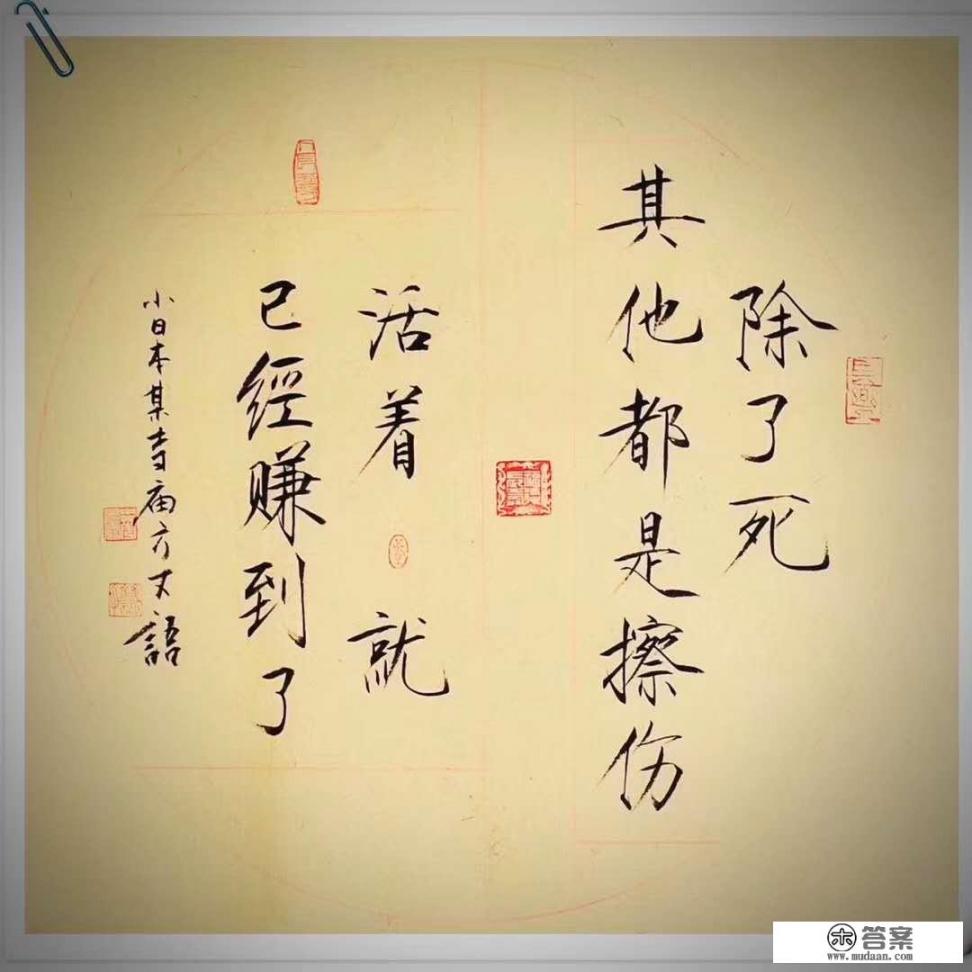 除了死
其他都是擦伤
活着就
已經赚到了
小日本某寺庙方丈語
答案
www.mudaan.com